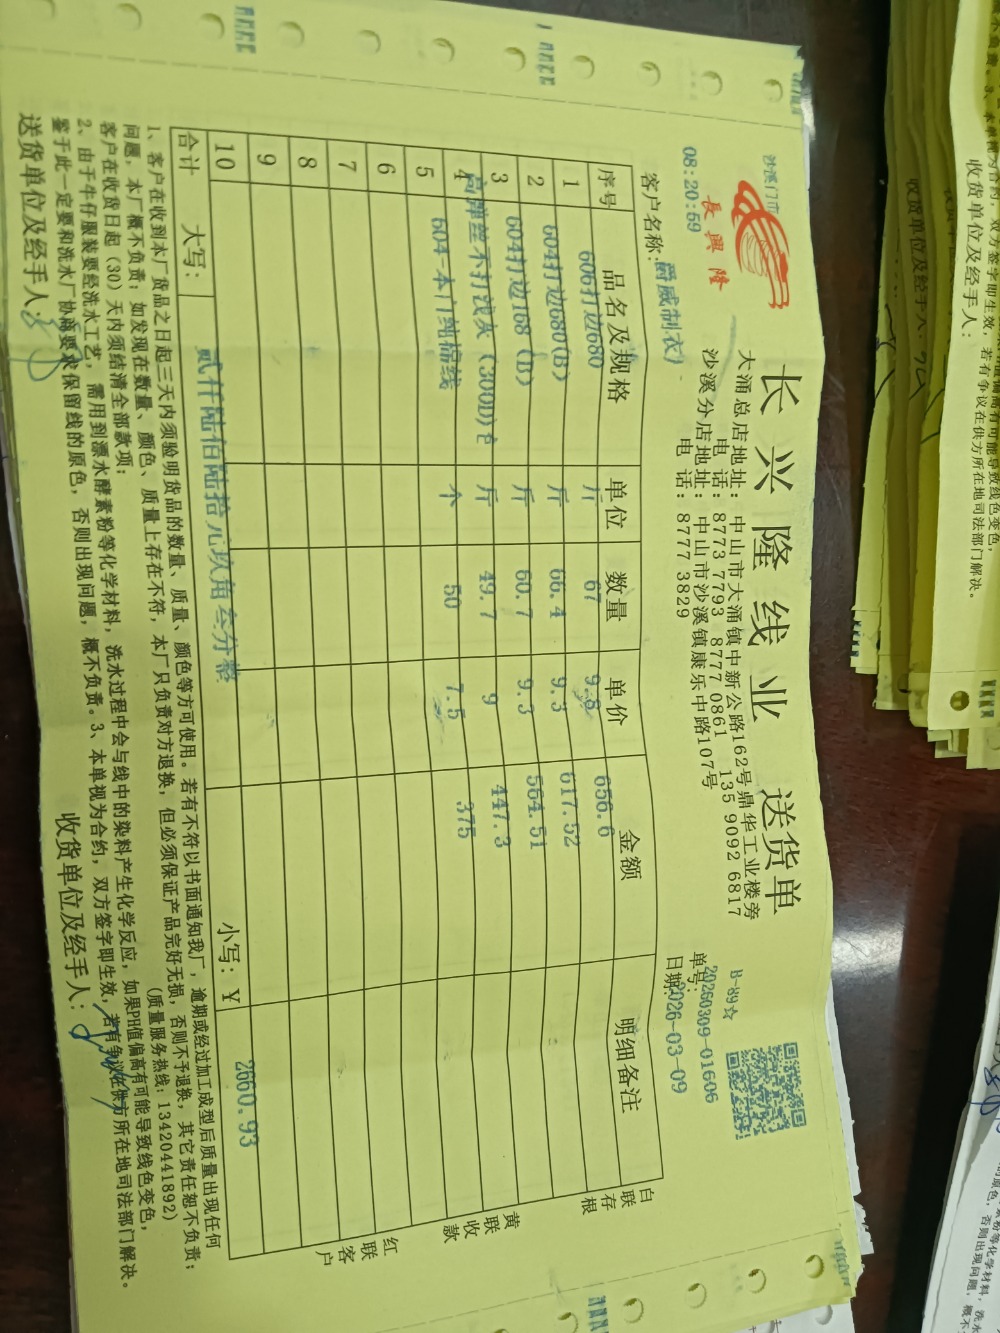 沙溪门市
長興隆
08:20:59
长兴隆线业 送货单
大涌总店地址：中山市大涌镇中新公路162号鼎华工业楼旁
电 话：8773 7793 8777 0861 135 9092 6817
沙溪分店地址：中山市沙溪镇康乐中路107号
电 话：8777 3829
B-89☆
单号：20260309-01606
日期：2026-03-09
客户名称：爵威制衣)
序号 品名及规格 单位 数量 单价 金额 明细备注
1 606打边680 斤 67 9.8 656.6
2 604打边680(B) 斤 66.4 9.3 617.52
3 604打边168（B） 斤 60.7 9.3 564.51
4 高弹丝不打沈灰（300D)包 斤 49.7 9 447.3
5 604-本门纯棉线 个 50 7.5 375
6
7
8
9
10
合计 大写： 贰仟陆佰陆拾元玖角叁分整 小写：¥ 2660.93
1、客户在收到本厂货品之日起三天内须验明货品的数量、质量、颜色等方可使用。若有不符以书面通知我厂，逾期或经过加工成型后质量出现任何
问题，本厂概不负责；如发现在数量、颜色、质量上存在不符，本厂只负责对方退换，但必须保证产品完好无损，否则不予退换，其它责任恕不负责；
客户在收货日起（30）天内须结清全部款项； (质量服务热线：13420441892)
2、由于牛仔服装要经洗水工艺，需用到漂水酵素粉等化学材料，洗水过程中会与线中的染料产生化学反应，如果PH值偏高有可能导致线色变色，
鉴于此一定要和洗水厂协商要求保留线的原色，否则出现问题，概不负责。3、本单视为合约，双方签字即生效，若有争议在供方所在地司法部门解决。
送货单位及经手人： 收货单位及经手人：
白联存根
黄联收款
红联客户
收货单位及经手人：